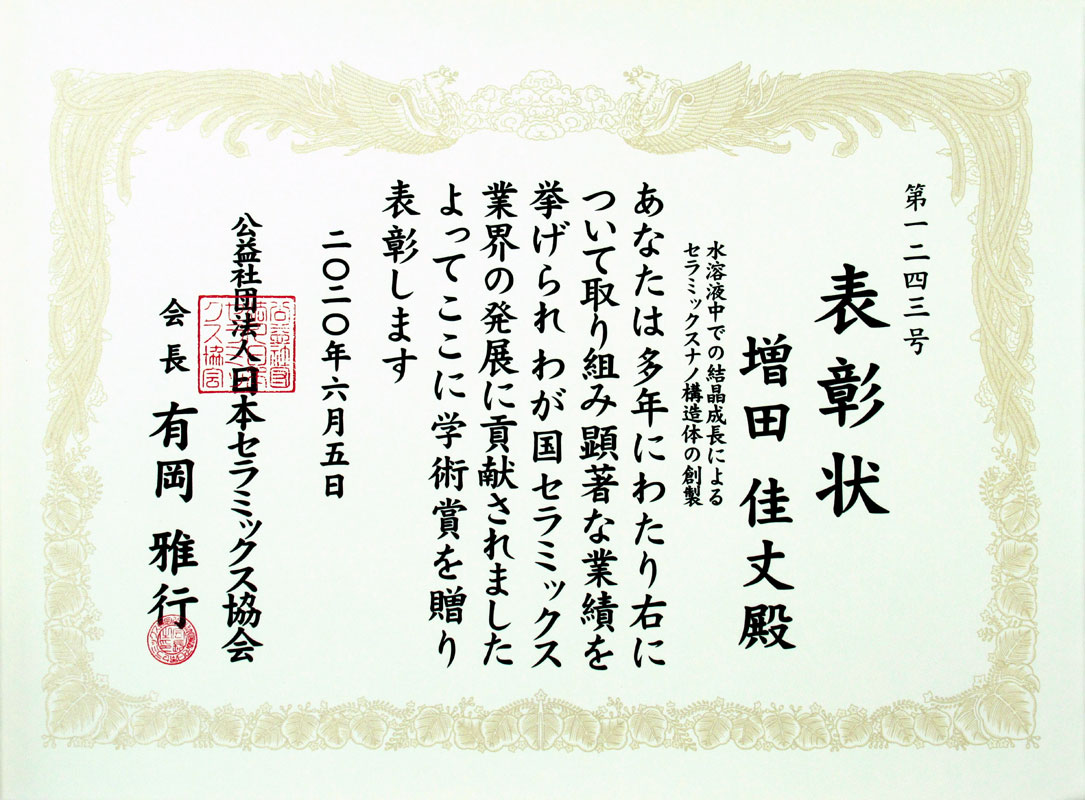 第一二四三号
表彰状
増田 佳丈 殿
水溶液中での結晶成長による
セラミックスナノ構造体の創製
あなたは多年にわたり右に
ついて取り組み顕著な業績を
挙げられわが国セラミックス
業界の発展に貢献されました
よってここに学術賞を贈り
表彰します
二〇二〇年六月五日
公益社団法人日本セラミックス協会
会長 有岡 雅行